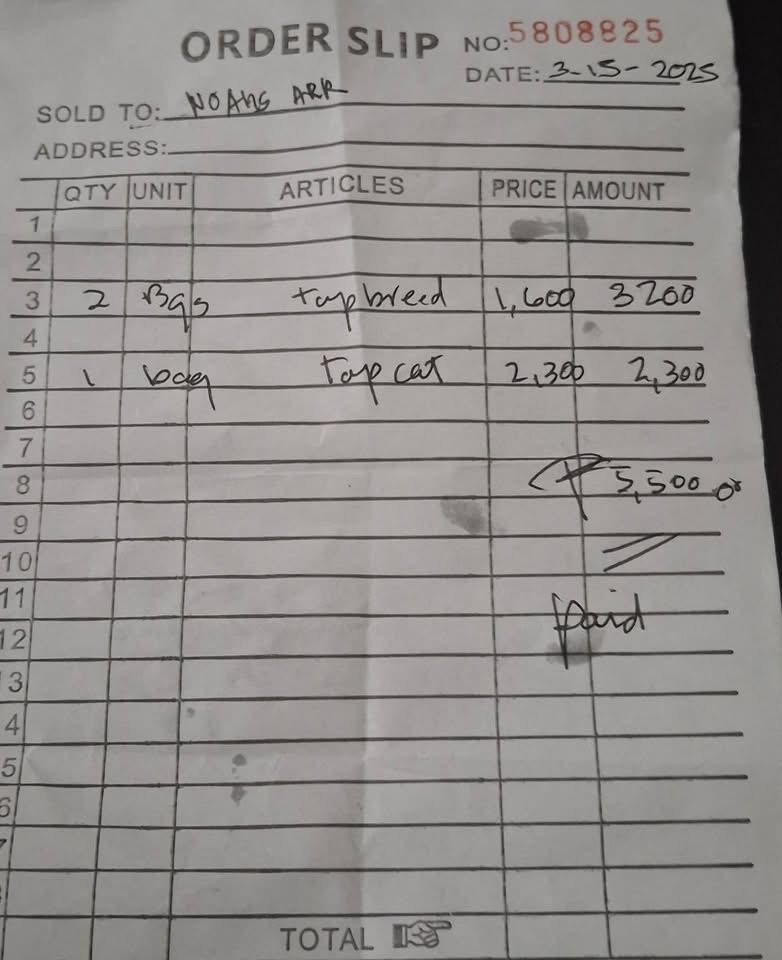 ORDER SLIP NO:5808825
DATE: 3-15-2025
SOLD TO: NOAHS ARK
ADDRESS:
QTY UNIT ARTICLES PRICE AMOUNT
1
2
3 2 Bgs top breed 1,600 3200
4
5 1 bag top cat 2,300 2,300
6
7
8 ₱ 5,500.00
9
10
11
12 paid
3
4
5
6
TOTAL